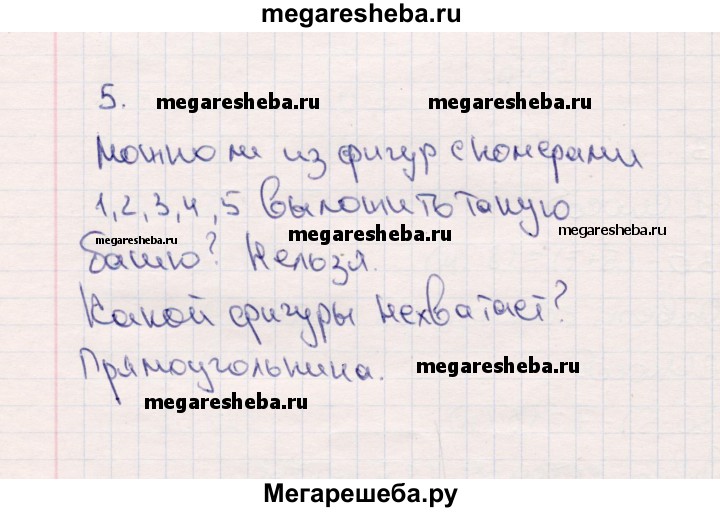 megaresheba.ru
5.
megaresheba.ru megaresheba.ru
Можно ли из фигур с номерами
1, 2, 3, 4, 5 выложить такую
megaresheba.ru megaresheba.ru megaresheba.ru
башню? Нельзя.
Какой фигуры нехватает?
Прямоугольника.
megaresheba.ru
megaresheba.ru
Мегарешеба.ру